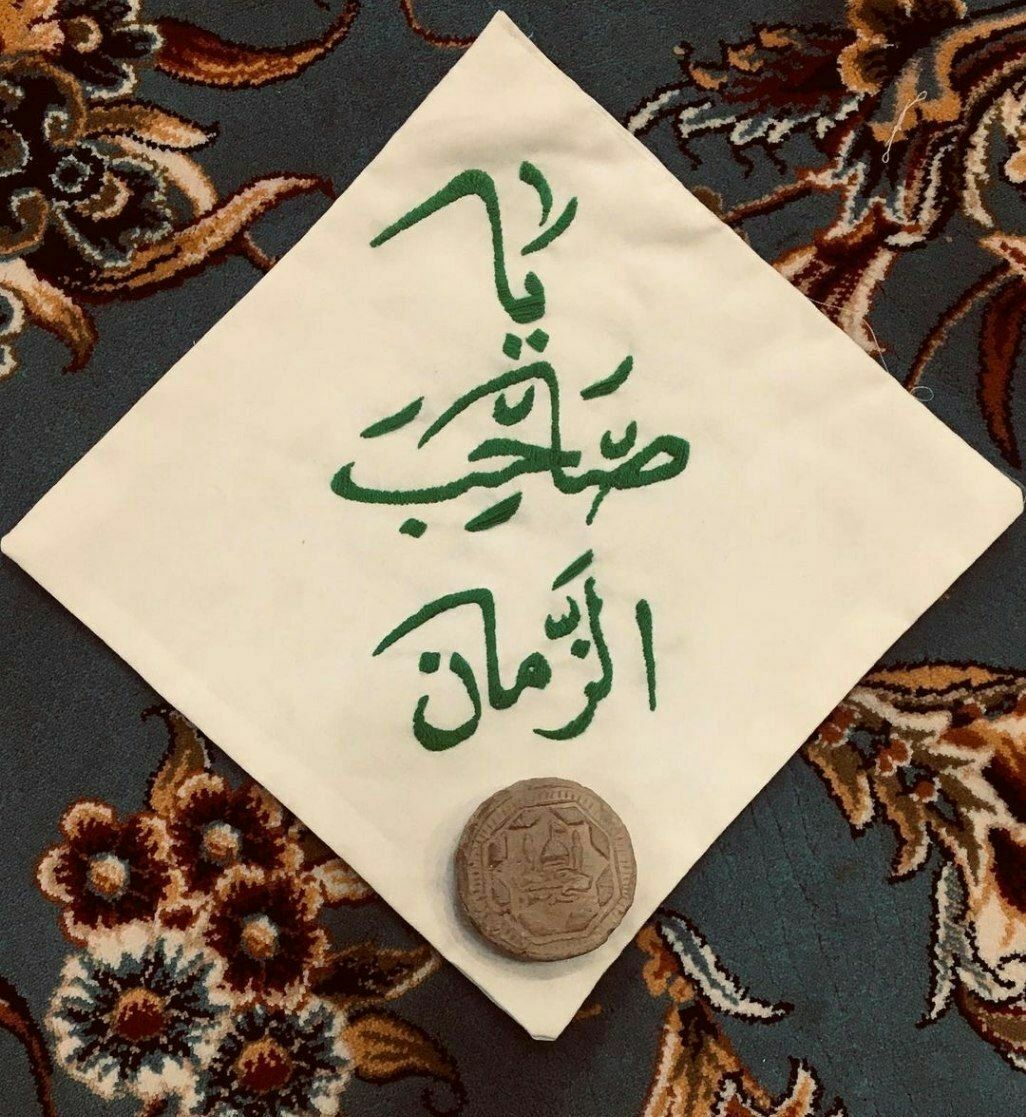 يَا
صَّاحِبَ
الزَّمان